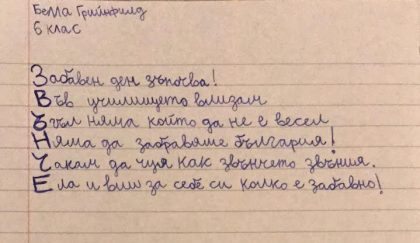 Белла Грийнфилд
6 клас
Забавен ден зъпочва!
Във училището влизам
Ъъл няма който да не е весел
Няма да забравяме българия!
Чакам да чуя как звънчето звъния.
Ела и виш за себе си колко е забавно!